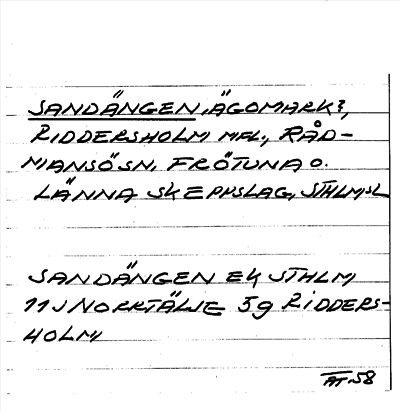 SANDÄNGEN, ÄGOMARK?,
RIDDERSHOLM MFL., RÅD-
MANSÖ SN, FRÖTUNA O.
LÄNNA SKEPPSLAG, STHLMS L
SANDÄNGEN EK STHLM
11J NORRTÄLJE 3g RIDDERS-
HOLM
ÅT-58